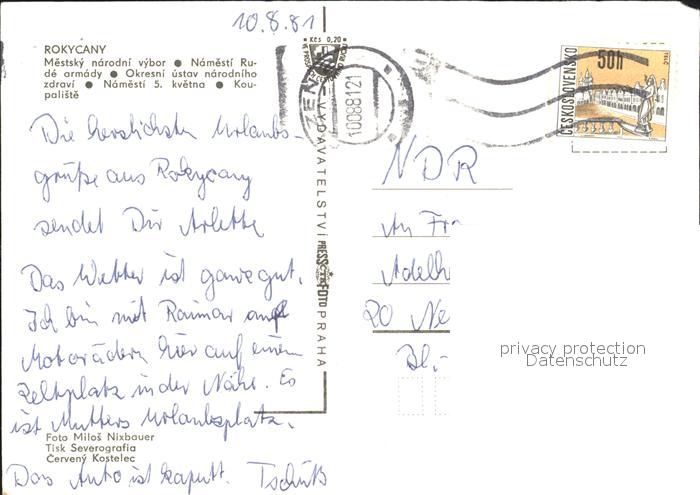 10.8.81
ROKYCANY
Městský národní výbor ● Náměstí Ru-
dé armády ● Okresní ústav národního
zdraví ● Náměstí 5. května ● Kou-
paliště
Die herzlichsten Urlaubs-
grüße aus Rokycany
sendet Dir Arlette
Das Wetter ist ganze gut.
Ich bin mit Raimar auf
Motorädern hier auf einem
Zeltplatz in der Nähe. Es
ist Mutters Urlaubsplatz.
Foto Miloš Nixbauer
Tisk Severografia
Červený Kostelec
Das Auto ist kaputt. Tschüß
Kčs 0,20
VYDAVATELSTVÍ PRESSFOTO PRAHA
10088121
50h
ČESKOSLOVENSKO
NDR
An Fr
Adelh
20 Ne
privacy protection
Datenschutz